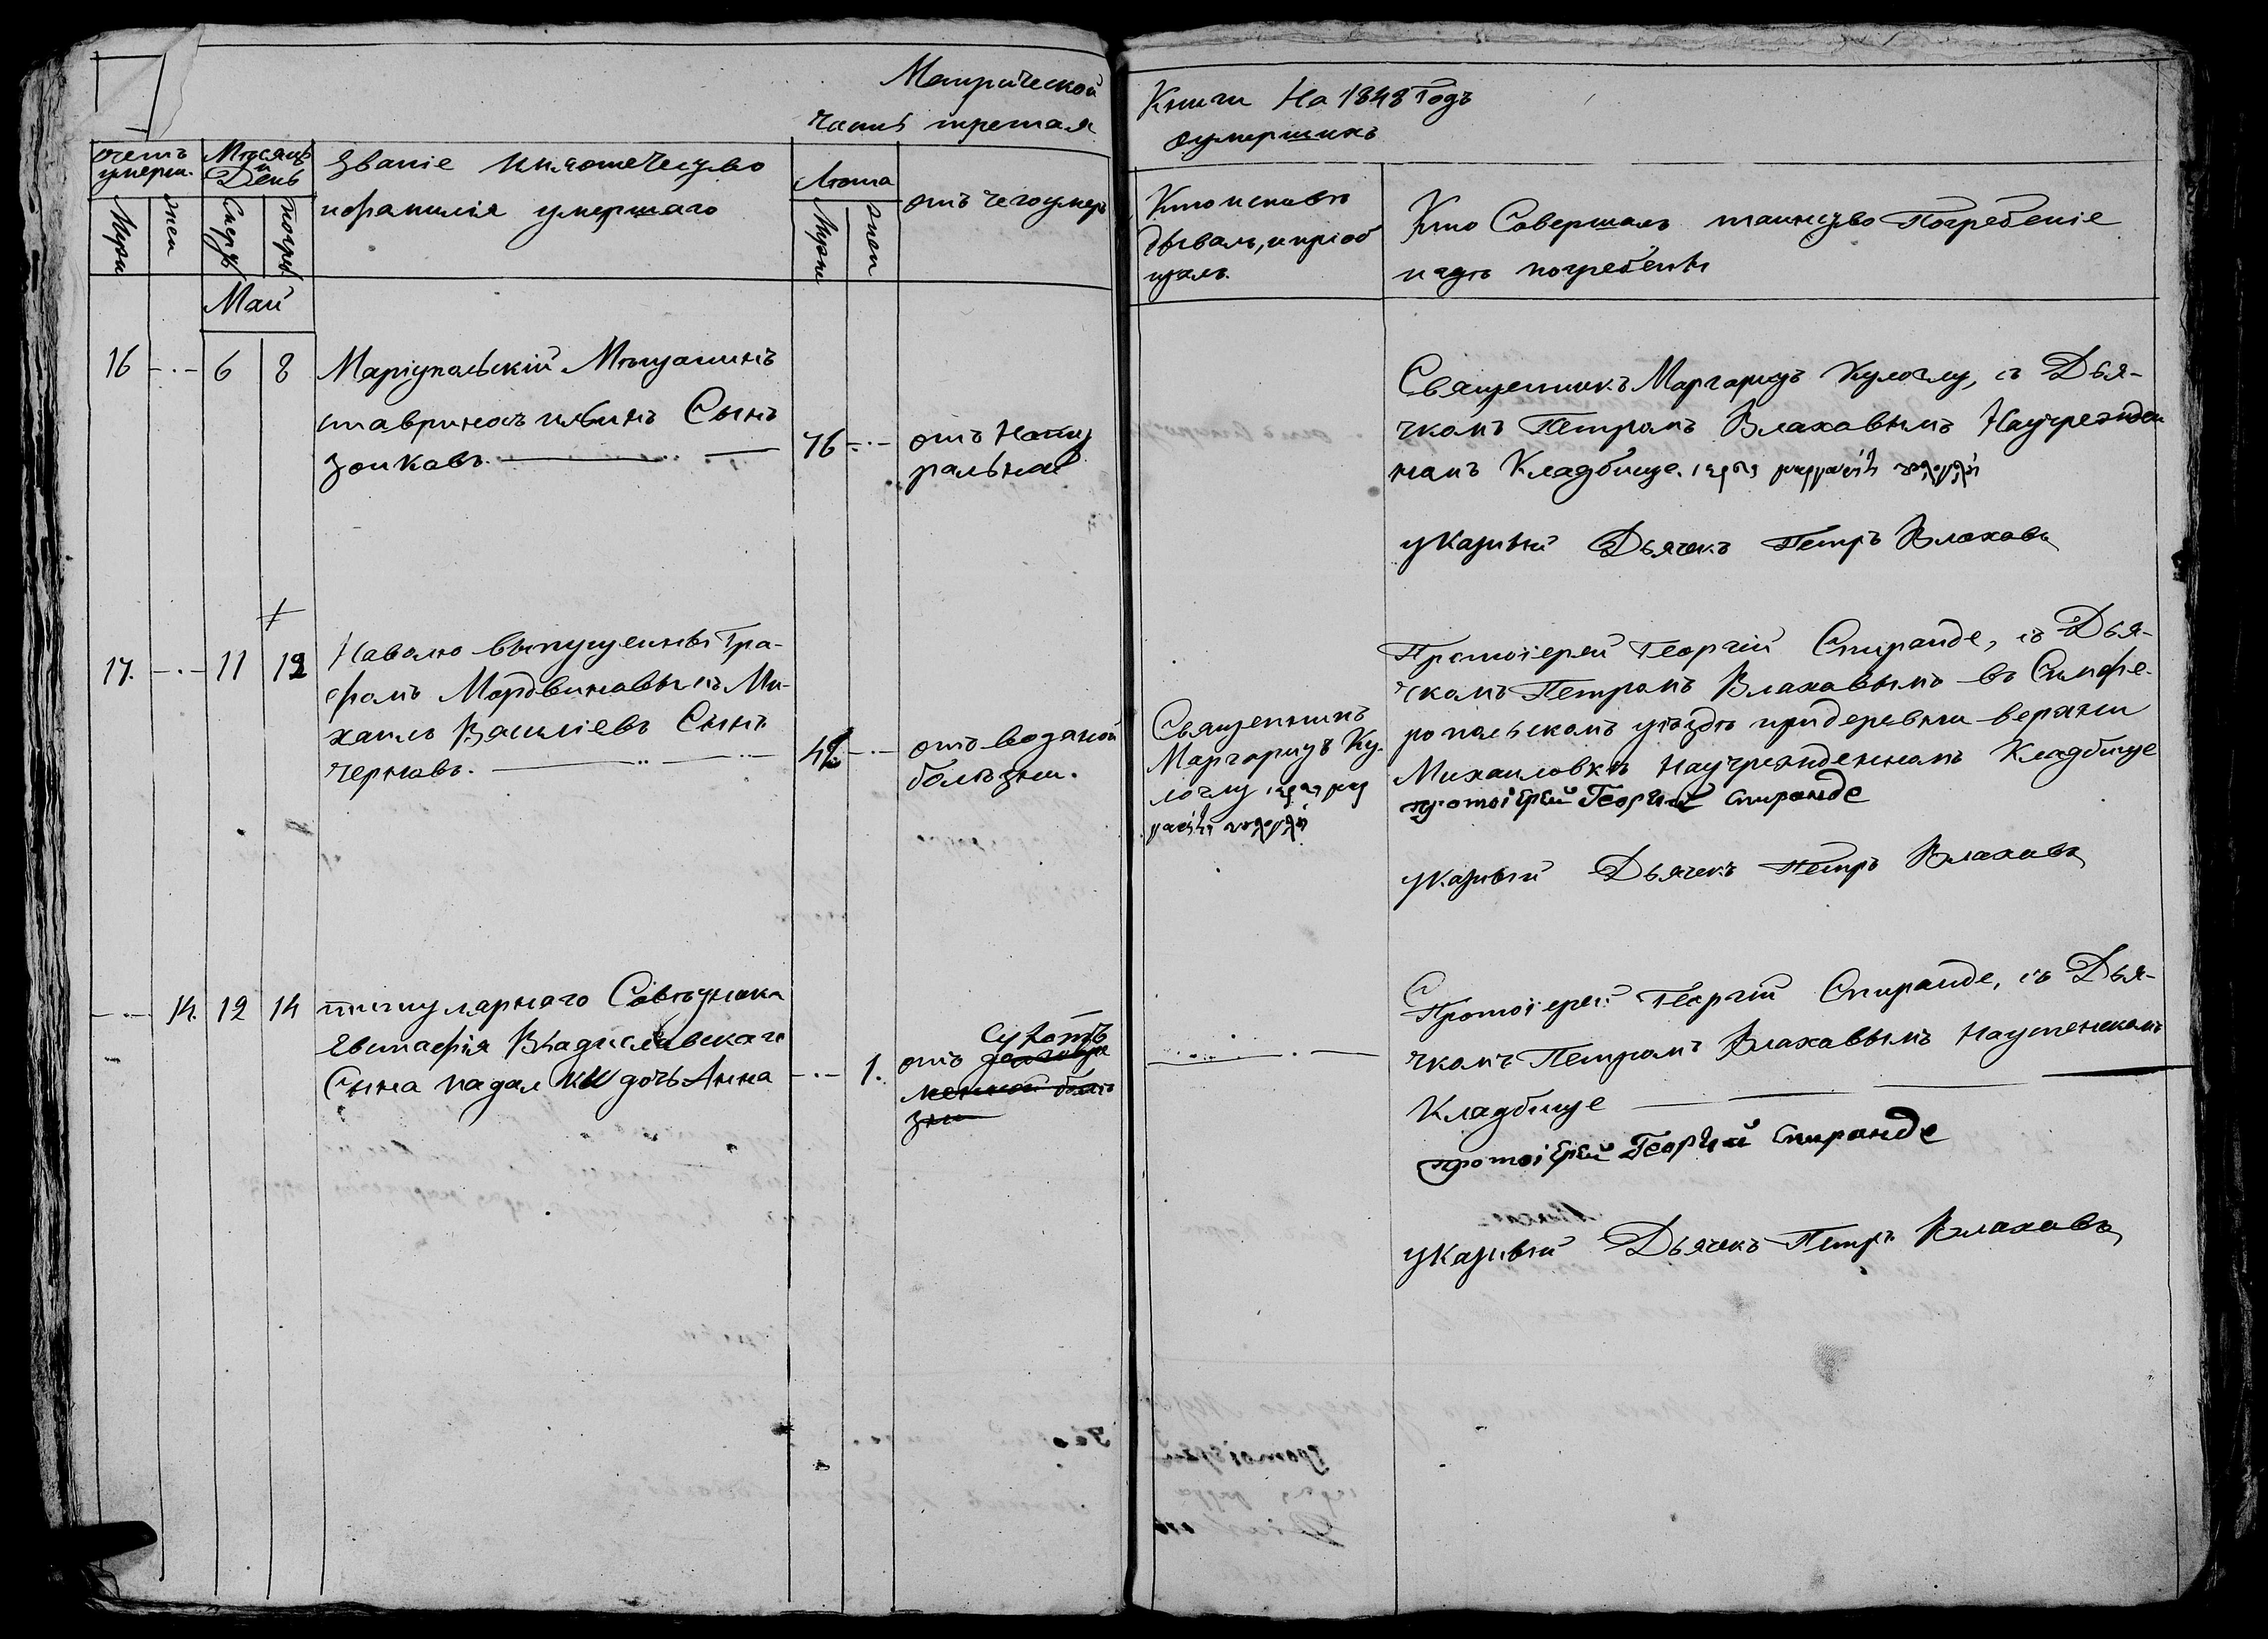 Метрической
часть третая
Книги На 1848 Годъ
оумершихъ
счетъ умерш.
Мужи
жен
Мѣсяцъ и День
Смерт
погреб
званіе имя отечество
и фамилія умершаго
Лета
Мужи
жен
отъ чего умеръ
Кто исповѣ
дывалъ, и пріоб
щалъ.
Кто Совершалъ таинство Погребеніе
и гдѣ погребены
Май
16 - . - 6 8
Маріупольскій Мѣщанинъ
ставринось Сынъ
зоиковъ.
76 - . -
отъ Нату
ральная
Священникъ Маргаритъ Кулоглу, съ Дья-
чкомъ Петромъ Влаховымъ На учрежден
номъ Кладбище.
указный Дьячекъ Петръ Влаховъ
17. - . - 11 12
На волю выпущенны Гра-
фомъ Мордвиновымъ Ми-
хаилъ Василіевъ Сынъ
черновъ.
- . -
отъ водяной
болѣзни.
Священникъ
Маргаритъ Ку-
логлу
Протоіерей Георгій Спиранде, съ Дья-
чкомъ Петромъ Влаховымъ въ Симфе-
ропольскомъ уѣздѣ при деревни верхни
Михаиловкѣ На учрежденномъ Кладбище
протоіерей Георгій Спиранде
указный Дьячекъ Петръ Влаховъ
- . - 14. 12 14
титулярнаго Совѣтника
Евстафія Владиславскаго
Сына дочь Анна
- . - 1.
Сухотѣ
отъ долговре
менной болѣ
зни
Протоіерей Георгій Спиранде, съ Дья-
чкомъ Петромъ Влаховымъ
Кладбище
протоіерей Георгій Спиранде
указный Дьячекъ Петръ Влаховъ